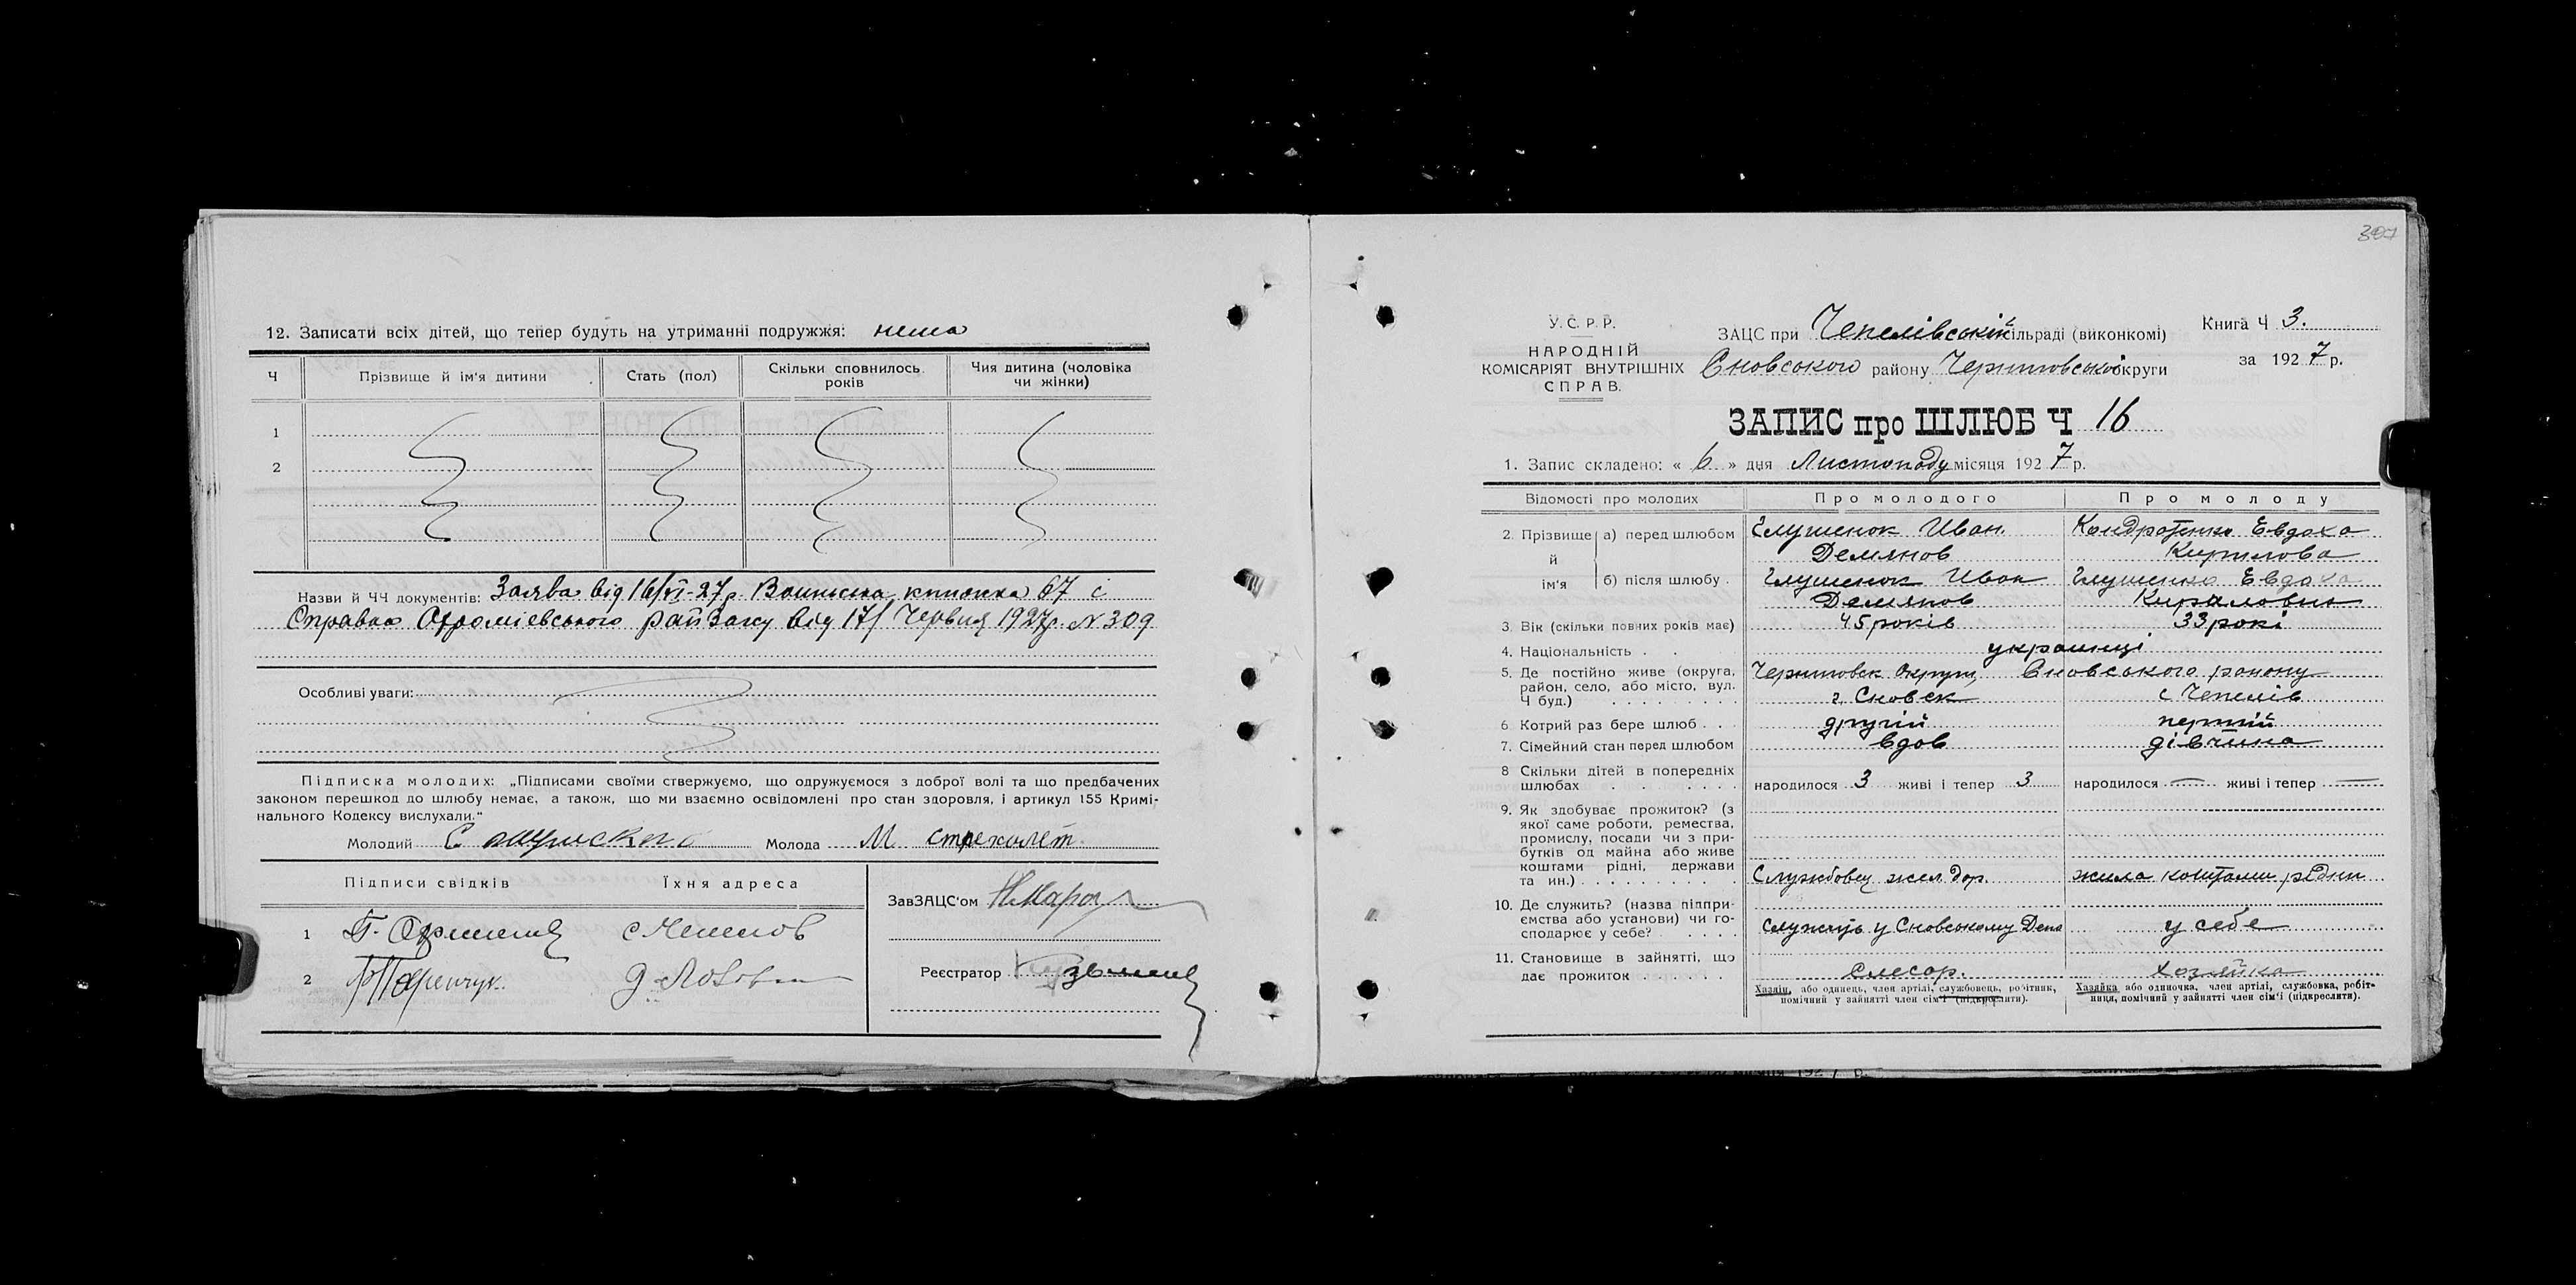 12. Записати всіх дітей, що тепер будуть на утриманні подружжя: нема
Ч Прізвище й ім'я дитини Стать (пол) Скільки сповнилось років Чия дитина (чоловіка чи жінки)
1
2
Назви й ЧЧ документів: Заява від 16/VI-27р. Воинська книжка 67 і
Справка від 17/ Червня 1927р. N 309
Особливі уваги:
Підписка молодих: „Підписами своїми стверджуємо, що одружуємося з доброї волі та що предбачених
законом перешкод до шлюбу немає, а також, що ми взаємно освідомлені про стан здоровля, і артикул 155 Кримі-
нального Кодексу вислухали.“
Молодий Молода М стрехолет
Підписи свідків Їхня адреса
ЗавЗАЦС'ом
1
2
Реєстратор
307
У. С. Р. Р.
НАРОДНІЙ
КОМІСАРІЯТ ВНУТРІШНІХ
СПРАВ.
ЗАЦС при Чепелівській сільраді (виконкомі)
Сновського району Чернговської округи
Книга Ч 3.
за 1927 р.
ЗАПИС про ШЛЮБ Ч 16
1. Запис складено: « 6 » дня Листопаду місяця 1927 р.
Відомості про молодих Про молодого Про молоду
2. Прізвище й ім'я а) перед шлюбом Глушенок Иван Кондратенко Евдаха
Демянов Кирилова
б) після шлюбу Глушенок Иван Глушенко Евдаха
Демянов Кириловна
3. Вік (скільки повних років має) 45 років 33 рокі
4. Національність українці
5. Де постійно живе (округа, Сновського району
район, село, або місто, вул. г. Сновск с Чепелів
Ч буд.)
6. Котрий раз бере шлюб другій першій
7. Сімейний стан перед шлюбом вдов дівчина
8 Скільки дітей в попередніх
шлюбах народилося 3 живі і тепер 3 народилося — живі і тепер —
9. Як здобуває прожиток? (з
якої саме роботи, ремества,
промислу, посади чи з при-
бутків од майна або живе
коштами рідні, держави
та ин.) Службовец жел. дор. жила коштами рідни
10. Де служить? (назва підпри-
ємства або установи) чи го-
сподарює у себе? Служить у Сновському Депо у себе
11. Становище в зайнятті, що
дає прожиток Слесар. хозяйка
Хазяїн, або одинець, член артілі, службовець, робітник,
помічний у зайнятті член сім'ї (підкреслити).
Хазяйка або одиночка, член артілі, службовка, робіт-
ниця, помічний у зайнятті член сім'ї (підкреслити).